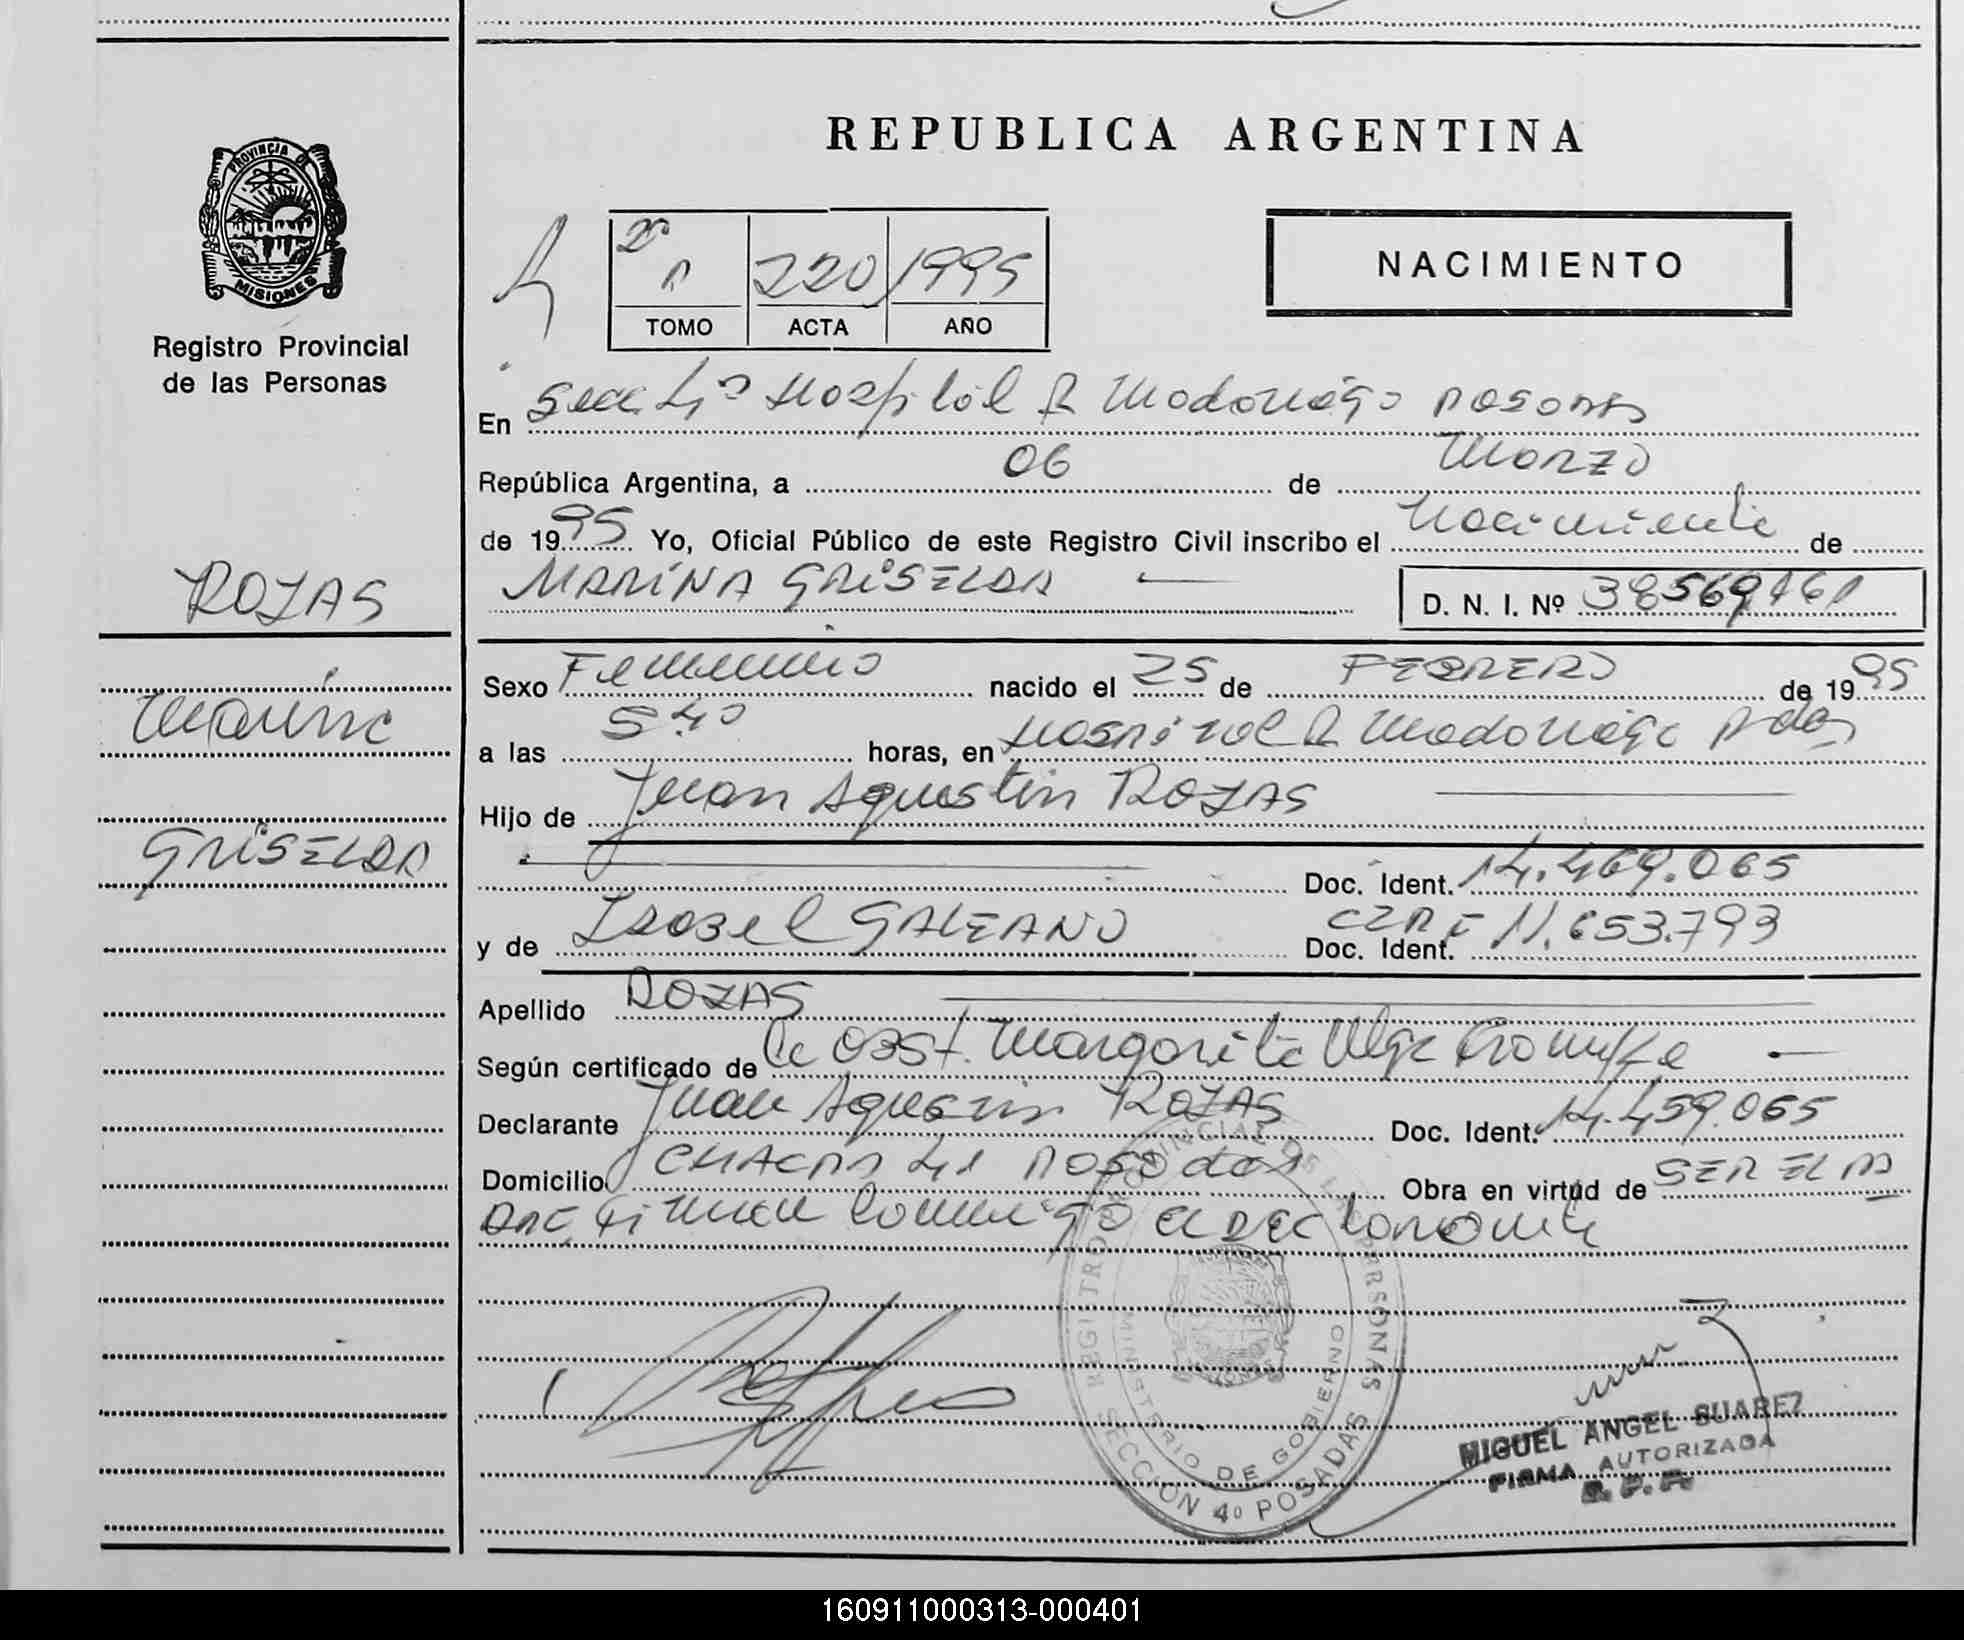 REPUBLICA ARGENTINA
PROVINCIA DE
MISIONES
Registro Provincial
de las Personas
2º
220 1995
TOMO ACTA AÑO
NACIMIENTO
En Secc 4º Hospital R Madariaga Posadas
República Argentina, a 06 de Marzo
de 1995 Yo, Oficial Público de este Registro Civil inscribo el Nacimiento de
MARINA GRISELDA
D. N. I. Nº
ROJAS
Marina
GRISELDA
Sexo Femenino nacido el 25 de FEBRERO de 1995
a las 5 40 horas, en Hospital R Madariaga Pdas
Hijo de Juan Agustin ROJAS
Doc. Ident. 14.469.065
y de Isabel GALEANO Doc. Ident. 11.653.793
Apellido ROJAS
Según certificado de la Obst. Margarita Olga
Declarante Juan Agustin ROJAS Doc. Ident. 14.459.065
Domicilio CHACRA 41 Posadas Obra en virtud de SER EL PA
DRE, Firman Conmigo el DEClarante
REGISTRO PROVINCIAL DE LAS PERSONAS
MINISTERIO DE GOBIERNO
SECCION 4º POSADAS
MIGUEL ANGEL SUAREZ
FIRMA AUTORIZADA
R. P. P.
160911000313-000401